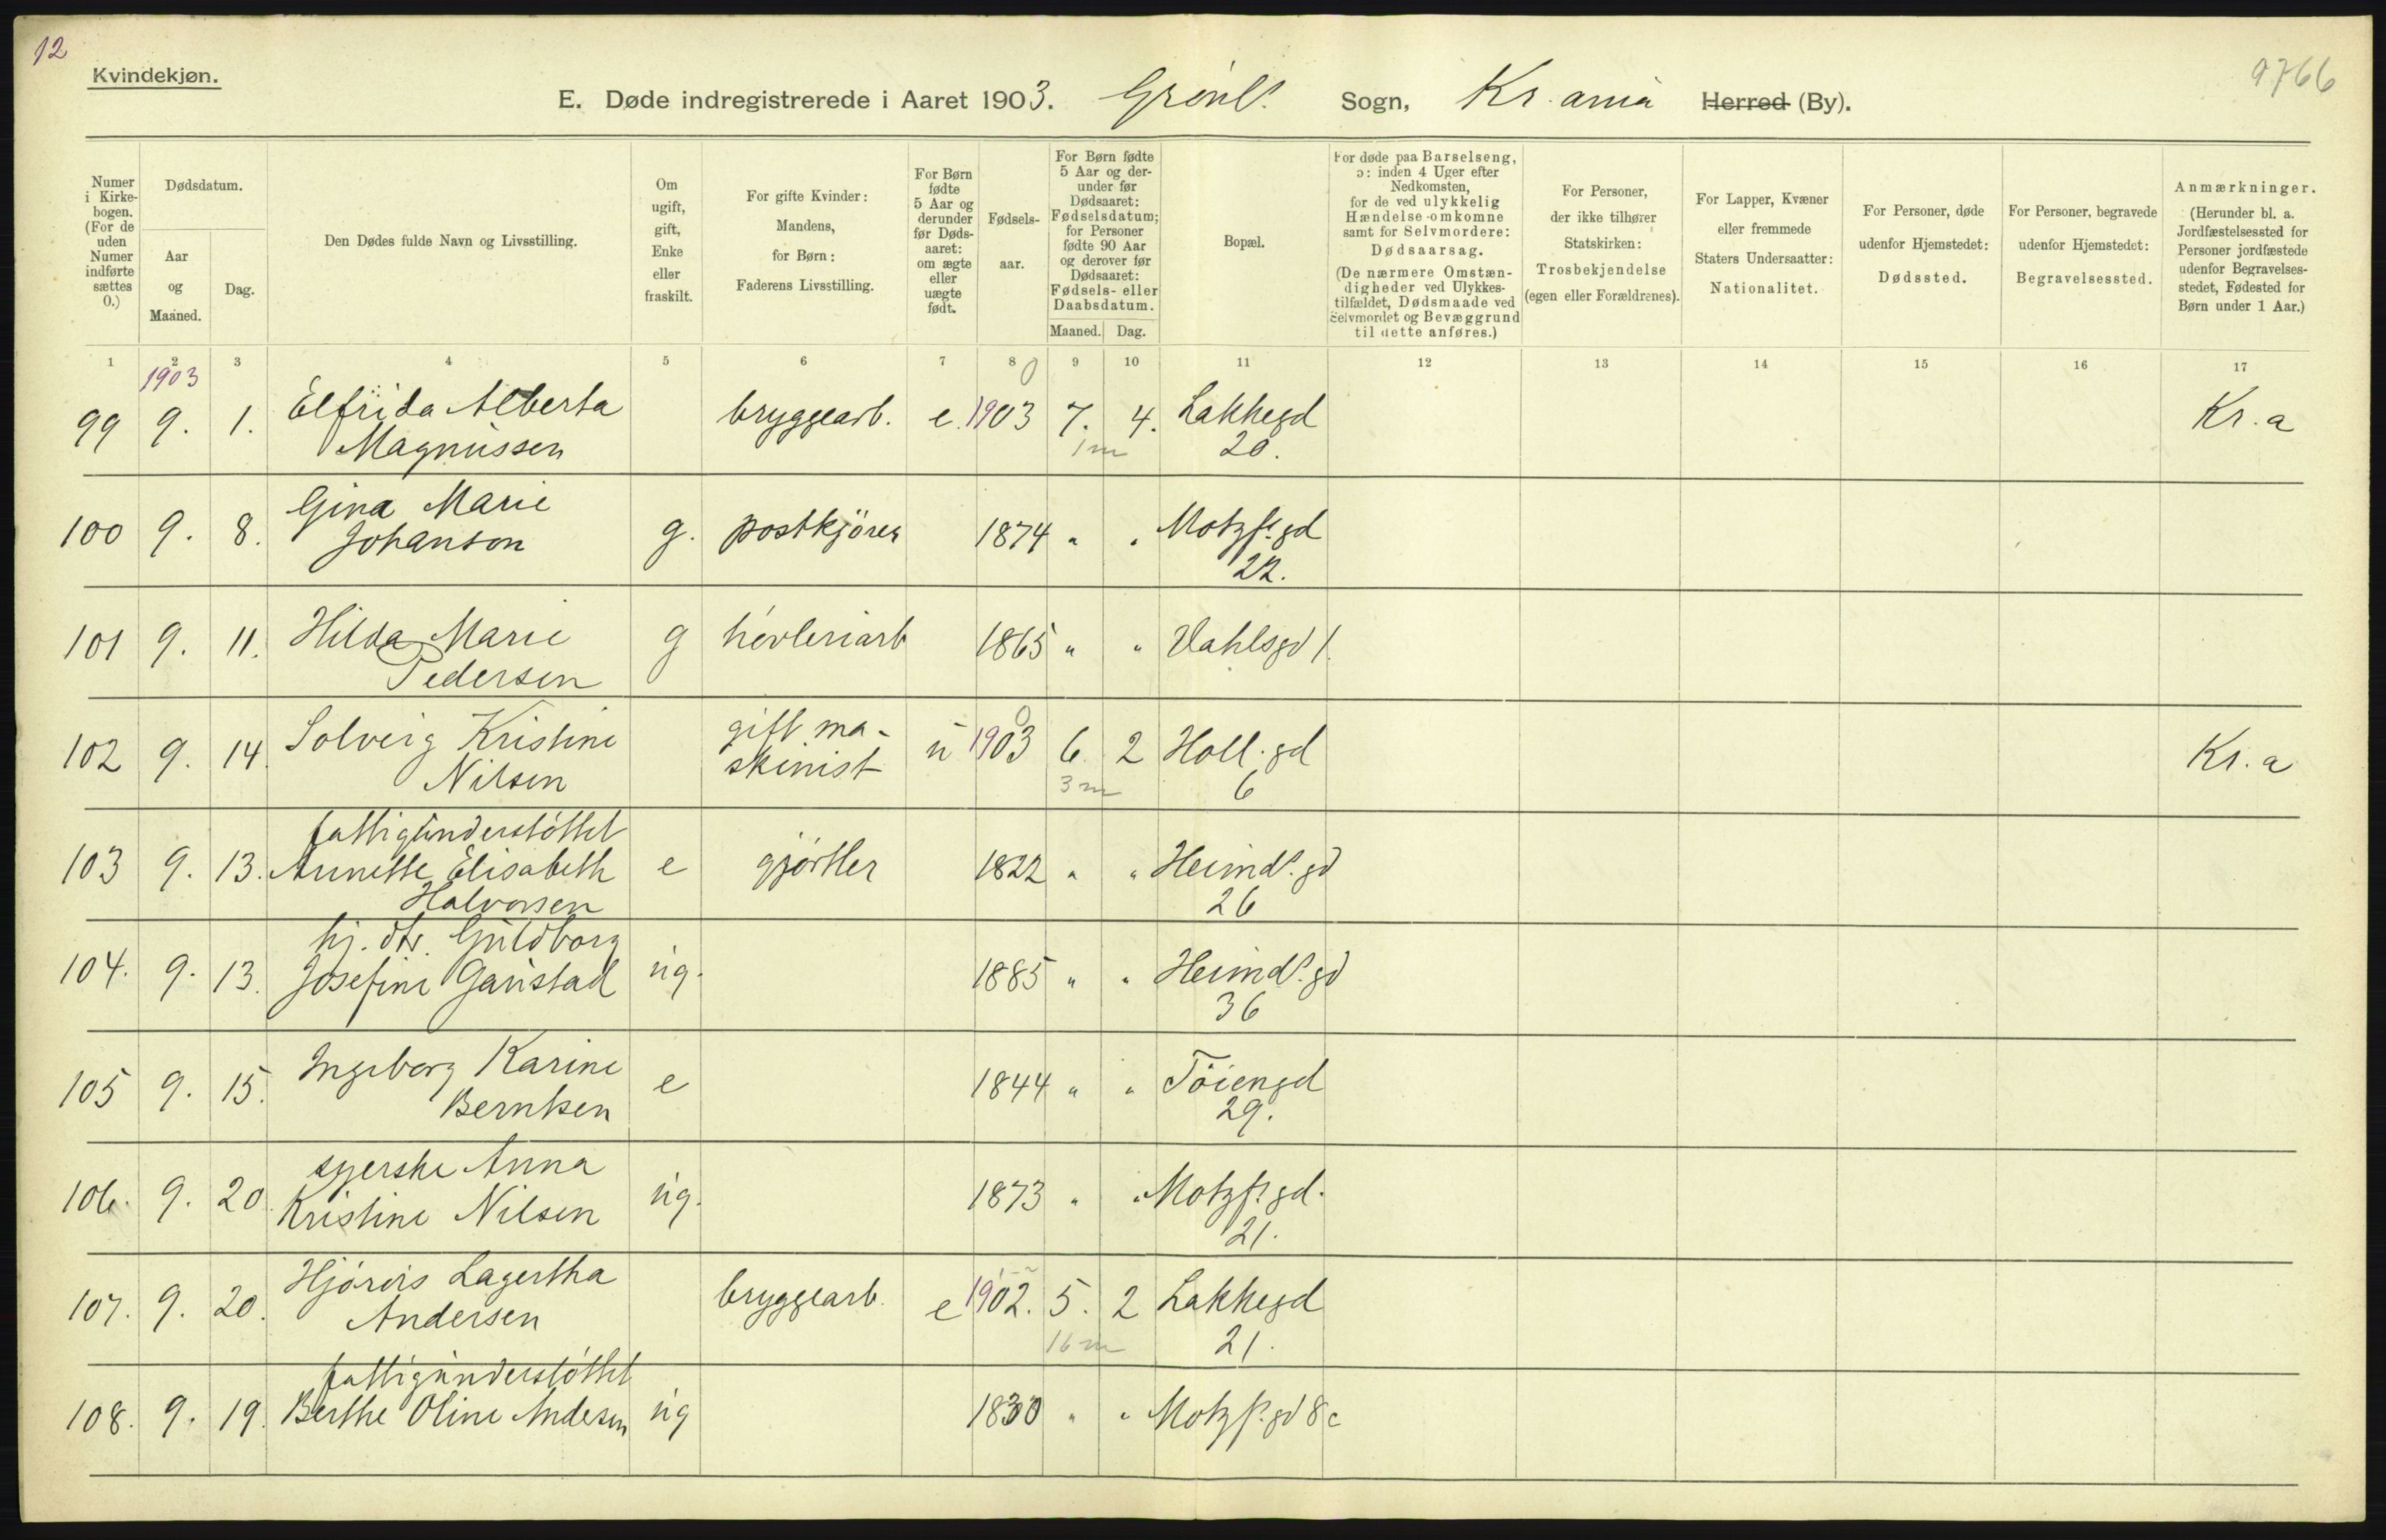 12
Kvindekjøn.
9766
E. Døde indregistrerede i Aaret 1903. Grönl. Sogn, Kr.ania Herred (By).
Numer i Kirke-bogen. (For de uden Numer indførte sættes 0.)
Dødsdatum.
Aar og Maaned.
Dag.
Den Dødes fulde Navn og Livsstilling.
Om ugift, gift, Enke eller fraskilt.
For gifte Kvinder: Mandens, for Børn: Faderens Livsstilling.
For Børn fødte 5 Aar og derunder før Døds-aaret: om ægte eller uægte født.
Fødsels-aar.
For Børn fødte 5 Aar og der-under før Dødsaaret: Fødselsdatum; for Personer fødte 90 Aar og derover før Dødsaaret: Fødsels- eller Daabsdatum.
Maaned. Dag.
Bopæl.
For døde paa Barselseng, ɔ: inden 4 Uger efter Nedkomsten, for de ved ulykkelig Hændelse omkomne samt for Selvmordere: Dødsaarsag. (De nærmere Omstæn-digheder ved Ulykkes-tilfældet, Dødsmaade ved Selvmordet og Bevæggrund til dette anføres.)
For Personer, der ikke tilhører Statskirken: Trosbekjendelse (egen eller Forældrenes).
For Lapper, Kvæner eller fremmede Staters Undersaatter: Nationalitet.
For Personer, døde udenfor Hjemstedet: Dødssted.
For Personer, begravede udenfor Hjemstedet: Begravelsessted.
Anmærkninger. (Herunder bl. a. Jordfæstelsessted for Personer jordfæstede udenfor Begravelses-stedet, Fødested for Børn under 1 Aar.)
1 2 3 4 5 6 7 8 9 10 11 12 13 14 15 16 17
1903 0
99 9. 1. Elfrida Alberta Magnussen bryggearb. e. 1903 7. 4. Lakkegd 20. Kr.a
1 m
100 9. 8. Gina Marie Johanson g. postkjörer 1874 " " Motzf. gd 22.
101 9. 11. Hilda Marie Pedersen g hövleriarb 1865 " " Vahlsgd 1.
102 9. 14. Solveig Kristine Nilsen gift ma-skinist u 1903 6 2 Holl. gd 6 Kr.a
0
3 m
103 9. 13. fattigunderstöttet Annette Elisabeth Halvorsen e gjörtler 1822 " " Heimd. gd 26
104. 9. 13. hj. dtr. Guldborg Josefine Gaustad ug. 1885 " " Heimd. gd 36
105 9. 15. Ingeborg Karine Berntsen e 1844 " " Töiengd 29.
106. 9. 20. syerske Anna Kristine Nilsen ug. 1873 " " Motzf. gd. 21.
107. 9. 20. Hjördis Lagertha Andersen bryggearb. e 1902. 5. 2 Lakkegd 21.
16 m
108. 9. 19. fattigunderstöttet Berthe Oline Andesen ug 1830 " " Motzf. gd 8c